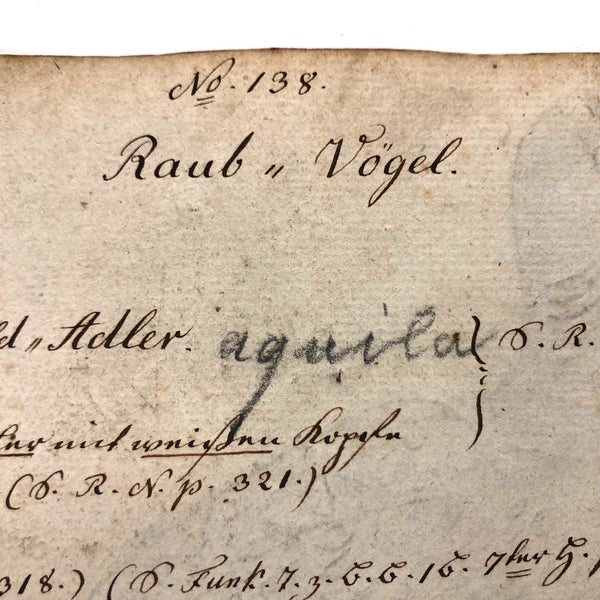 No. 138.
Raub „ Vögel.
d „ Adler. aquila } S. R.
ler mit weißen Kopfe
(S. R. N. p. 321.)
318.) (S. Funk. 7. z. B. 6. 16. 7ter H.